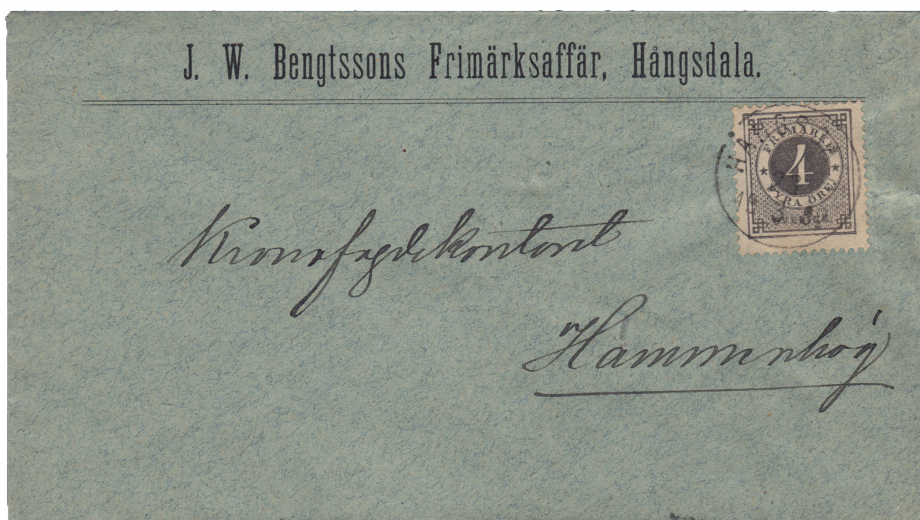 J. W. Bengtssons Frimärksaffär, Hångsdala.
FRIMÄRKE
4
FYRA ÖRE
SVERIGE
Kronofogdekontoret
Hammenhög